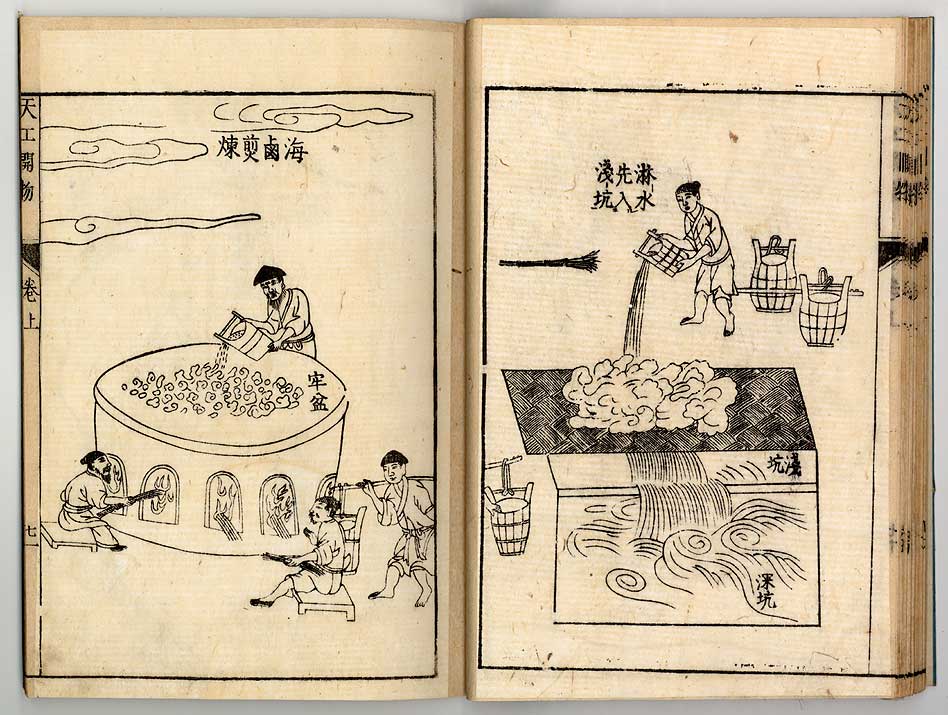 淋水
先入
淺坑
淺坑
深坑
海鹵煎煉
牢盆
天工開物
卷上
七